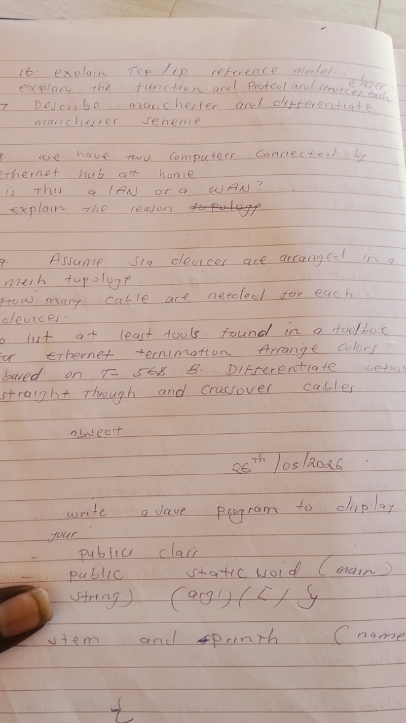 16. explain TCP/IP reference model.
explan the function and Protcol and services each layer
7 Describe manchester and differentiate
manchester scheme
we have two computers connected by
ethernet hub at home
is this a LAN or a WAN?
explain the reason topology
9. Assume six devices are arranged in a
mesh topology.
How many cable are needed for each
devices.
o list at least tools found in a toolbox
for Ethernet termimation Arrange colors
based on T= 568 B. Differentiate
straight Through and crossover cables
object
26th/05/2026
write a Java program to display
your
- public class
- public static void (main)
string) (args) ([) }
stem and printh (name
{